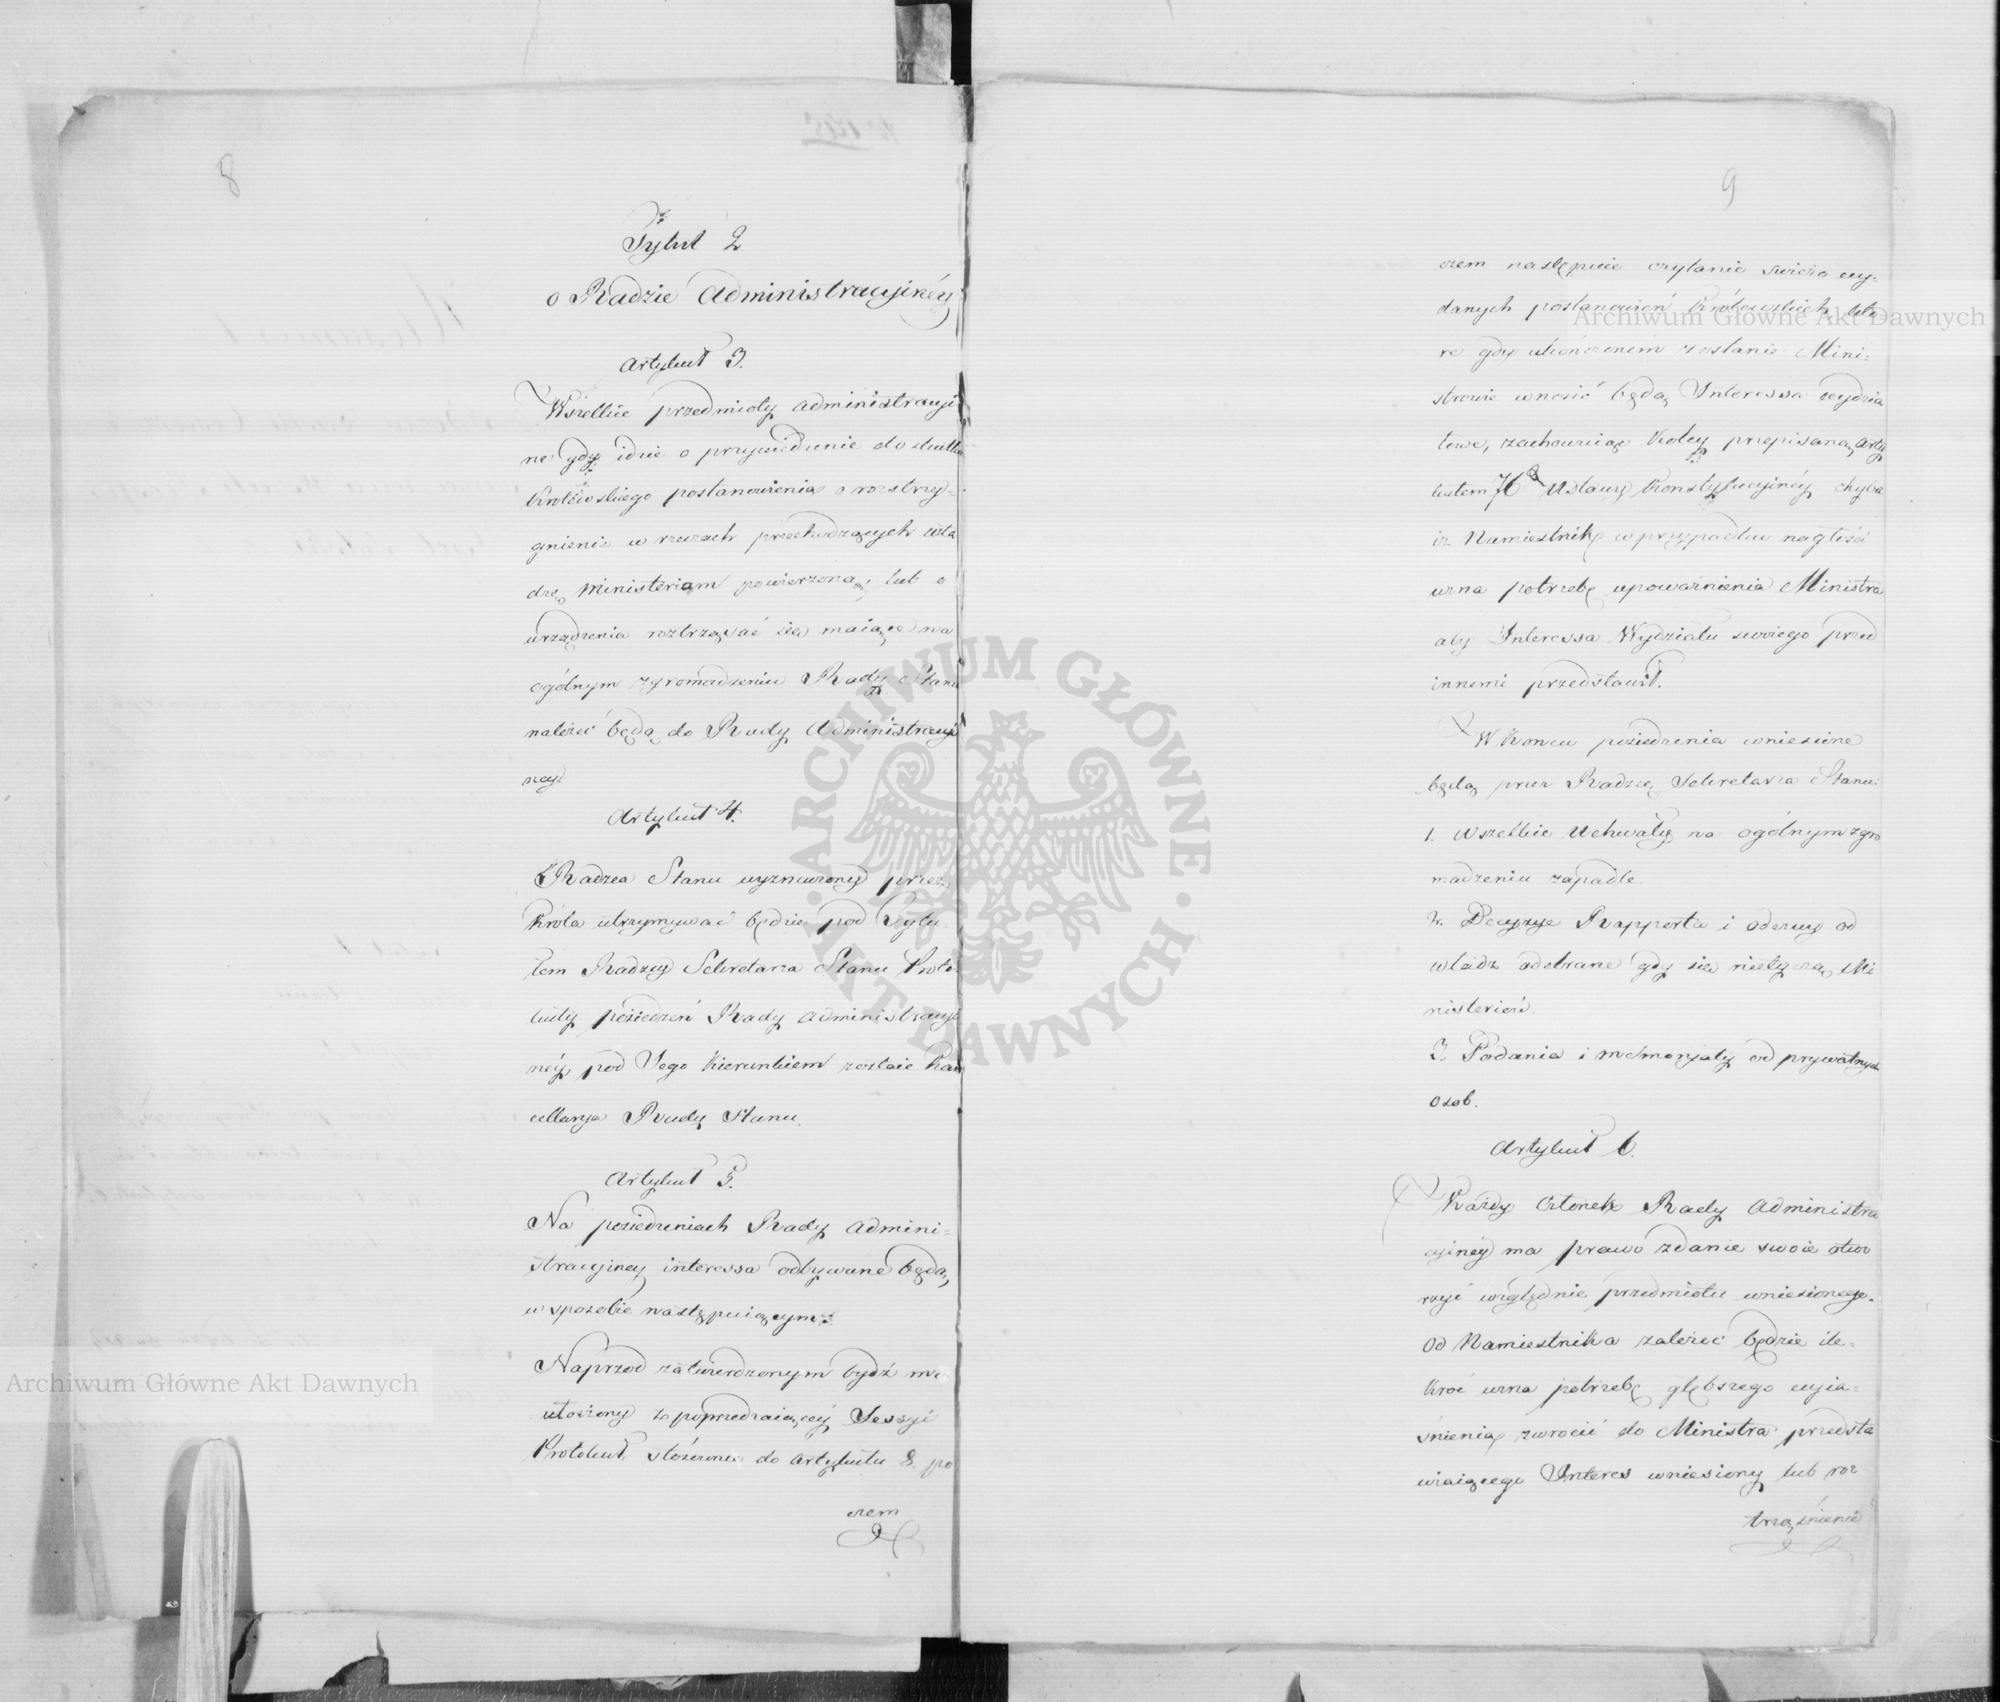 8
Tytuł 2
o Radzie Administracyinéy
Artykuł 3.
Wszelkie przedmioty administracyi
ne gdy idzie o przywiedzenie do skutku
Królewskiego postanowienia o rozstrzy-
gnienie w rzeczach przechodzących wła
dzę Ministeriom powierzoną, lub o
urządzenia roztrząsać się maiące na
ogólnym zgromadzeniu Rady Stanu
należeć będą do Rady Administracyi
ney.
Artykuł 4.
Radzca Stanu wyznaczony przez
Króla utrzymywać będzie pod Tytu-
łem Radzcy Sekretarza Stanu Proto-
kuły posiedzeń Rady administracyi
néy, pod Jego kierunkiem zostaie Kan
cellarya Rady Stanu.
Artykuł 5.
Na posiedzeniach Rady Admini-
stracyiney interessa odbywane będą,
w sposobie następuiącym:
Naprzod zatwierdzonym bydź ma
ułożony z poprzedzaiącéy Sessyi
Protokuł stósownie do artykułu 8. po
czem
9
czem nastąpuie czytanie swieżo wy-
danych postanowień Królewskich, któ
re gdy ukończonem zostanie Mini-
strowie wnosić będą Interessa wydzia
łowe, zachowuiąc koley przepisaną arty
kułem 76 Ustawy Konstytucyinéy chyba
iż Namiestnik w przypadku nagłości
uzna potrzebę upoważnienia Ministra
aby Interessa Wydziału swoiego przed
innemi przedstawił.
W Koncu posiedzenia wniesione
będą przez Radzcę Sekretarza Stanu:
1. Wszelkie Uchwały na ogólnym zgro
madzeniu zapadłe.
2. Decyzye Rapporta i odezwy od
władz odebrane gdy się nietyczą Mi
nisteriów.
3. Podania i memoryały od prywatnych
osob.
Artykuł 6.
Każdy Członek Rady Administra
cyinéy ma prawo zdanie swoie otwo
rzyć względnie przedmiotu wniesionego.
Od Namiestnika zależeć będzie ile-
kroć uzna potrzebę głębszego wyia-
śnienia zwrocić do Ministra przedsta
wiaiącego Interes wniesiony lub roz
trząśnienie
Archiwum Główne Akt Dawnych
Archiwum Główne Akt Dawnych
ARCHIWUM GŁÓWNE AKT DAWNYCH